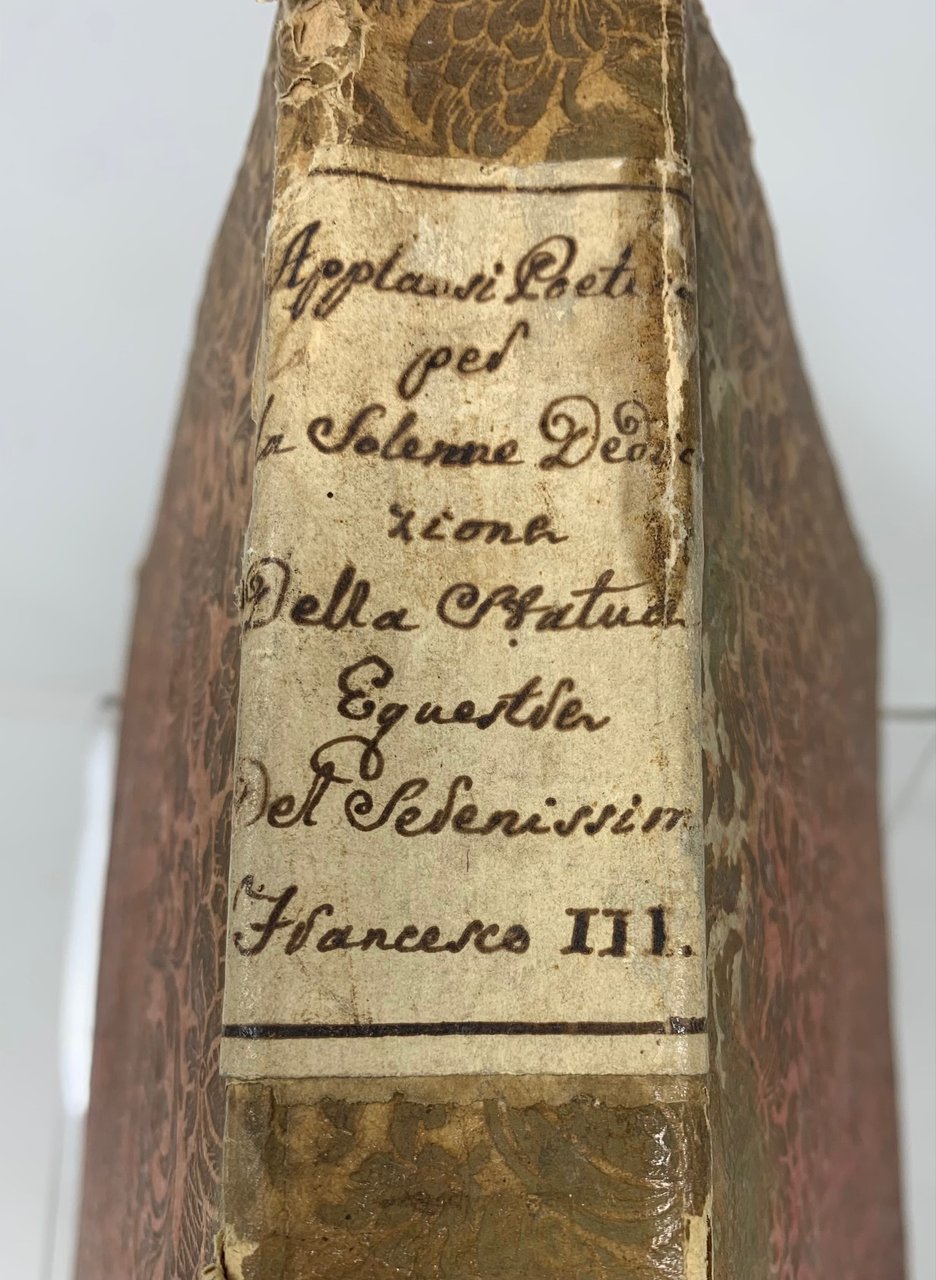 Applausi Poeti
per
la Solenne Dedica
zione
Della Statua
Equestre
Del Serenissim
Francesco III.